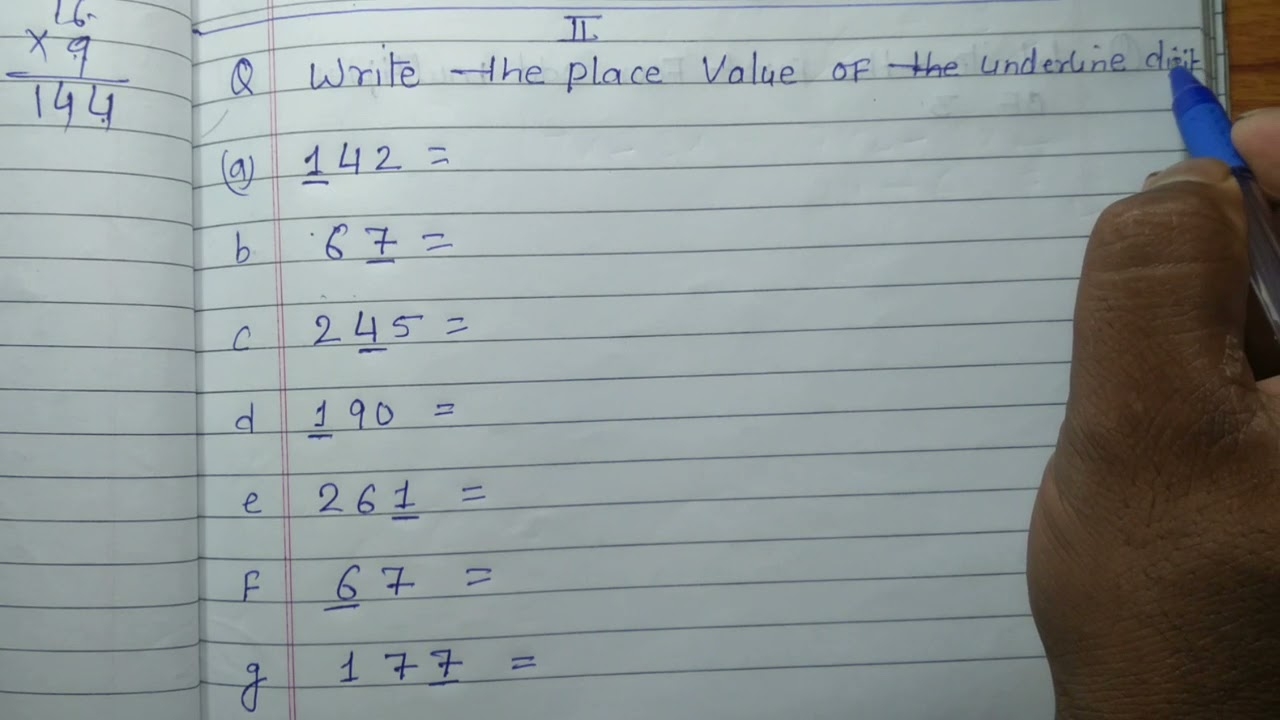 16
× 9
144
II
Q Write the place Value of the underline digit
(a) 142 =
b 67 =
c 245 =
d 190 =
e 261 =
F 67 =
g 177 =